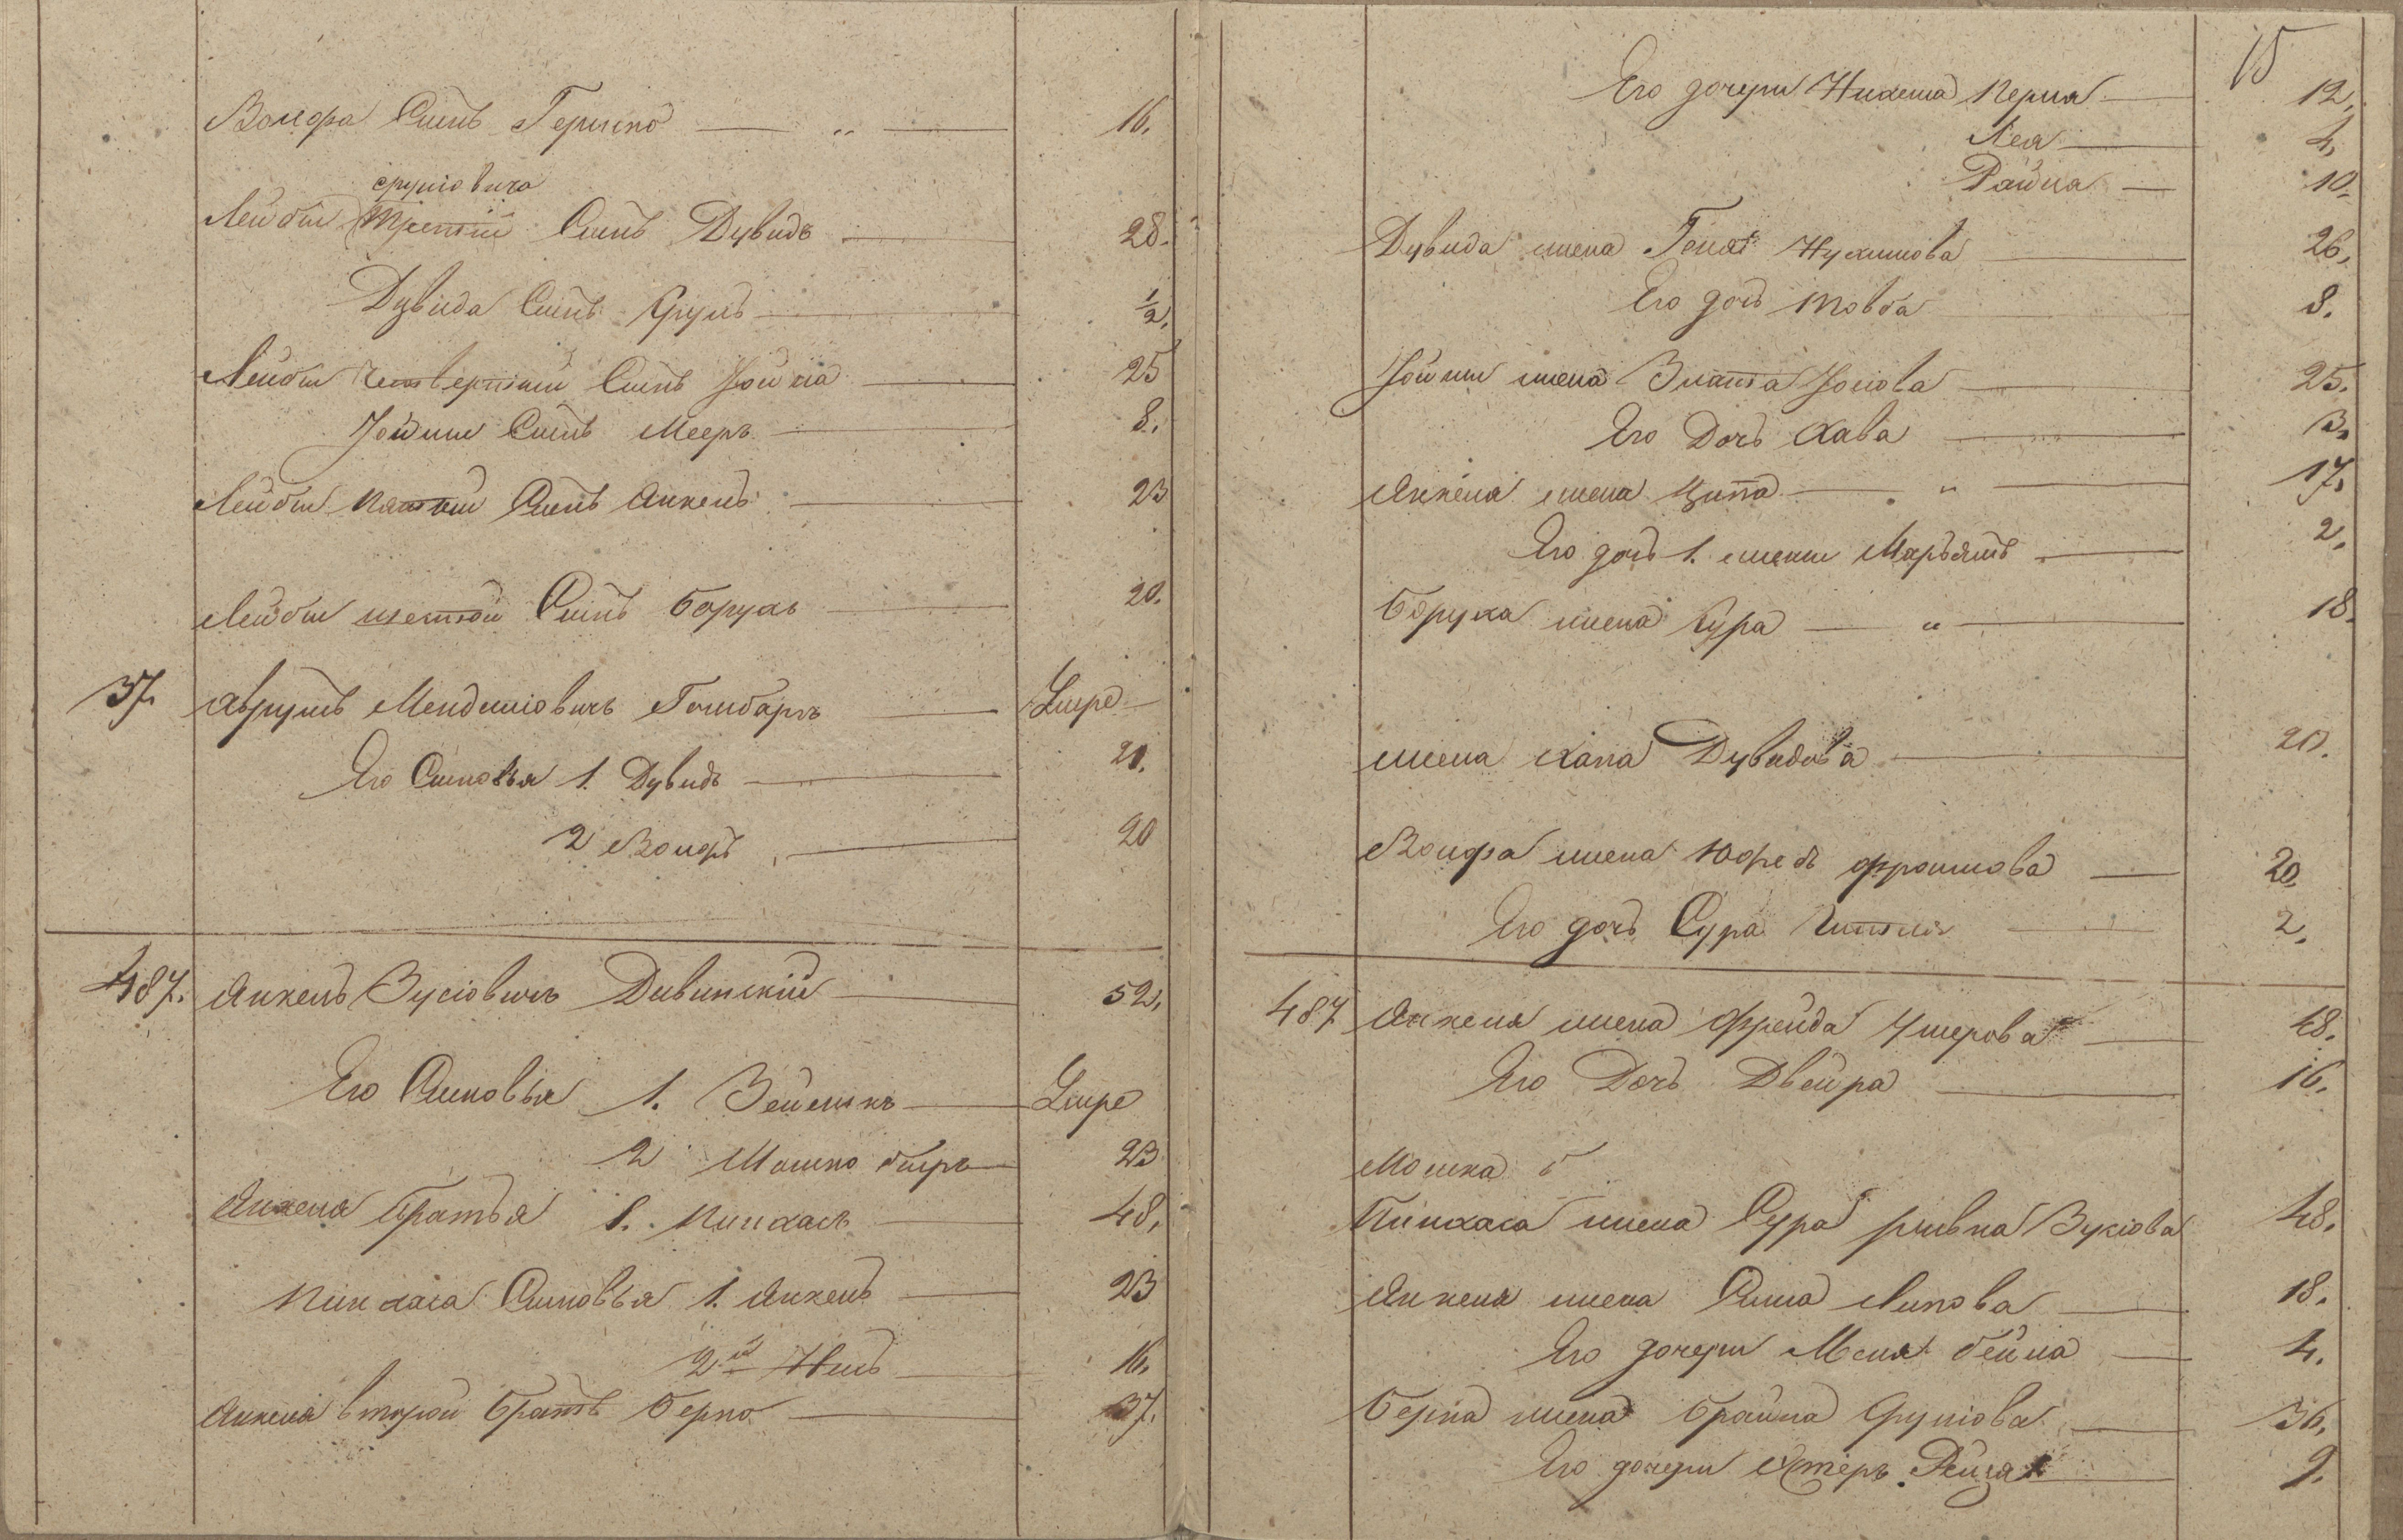 Волфа Сынъ Гершко — „ — 16.
срулiовича
Лейбы Третiй Сынъ Дувидъ — 28.
Дувида Сынъ Сруль — 1/2.
Лейбы четвертый Сынъ Іойна — 25
Іойны Сынъ Мееръ — 8.
Лейбы пятый Сынъ Анкель — 23
Лейбы шестой Сынъ Борухъ — 20.
37. Аврумъ Менделiовичъ — Умре
Его Сыновья 1. Дувидъ — 21.
2 Волфъ — 20
487. Анкель Зусiовичъ Дивинскiй — 52.
Его Сыновья 1. Зейликъ — Умре
2 Мошко беръ — 23
Анкеля Братья 1. Пинхасъ — 48.
Пинхаса Сыновья 1. Анкель — 23
2й — 16.
Анкеля второй братъ Берко — 37.
15
Его дочери Перля — 12.
Лея — 4.
Райца — 10.
Дувида жена Геня Нухимова — 26.
Его дочь Товба — 8.
Іойны жена Злата — 25.
Его Дочь Хава — 3.
Анкеля жена Ципа — „ — 17.
Его дочь 1. жены Марьямъ — 2.
Боруха жена Сура — „ — 18.
жена Хапа Дувидова — 20.
Волфа жена Фроимова — 20.
Его дочь Сура — 2.
487 Анкеля жена Фрейда Умерова — 48.
Его Дочь Двейра — 16.
Мошка б
Пинхаса жена Сура ривка Зусiова — 48.
Анкеля жена Сима Липова — 18.
Его дочери Меня бейла — 4.
Берка жена брайна Срулiова — 36.
Его дочери Эстеръ Рейза — 9.